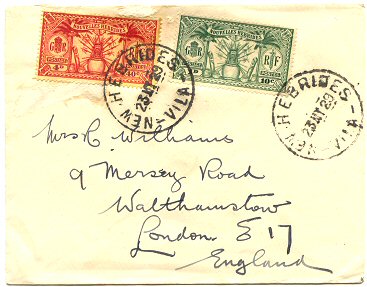 NOUVELLES HEBRIDES NOUVELLES HEBRIDES
GR RF
POSTES
10c
NEW-HEBRIDES-VILA
NEW-HEBRIDES-VILA
Mrs R Williams
9 Mersey Road
Walthamstow
London E 17
England